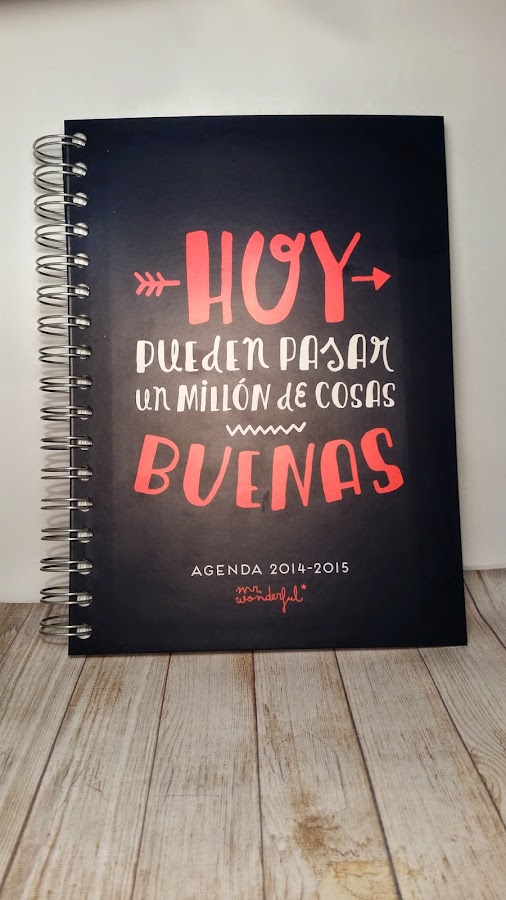 HOY
PUEDEN PASAR
UN MILLÓN DE COSAS
BUENAS
AGENDA 2014-2015
mr.
wonderful*